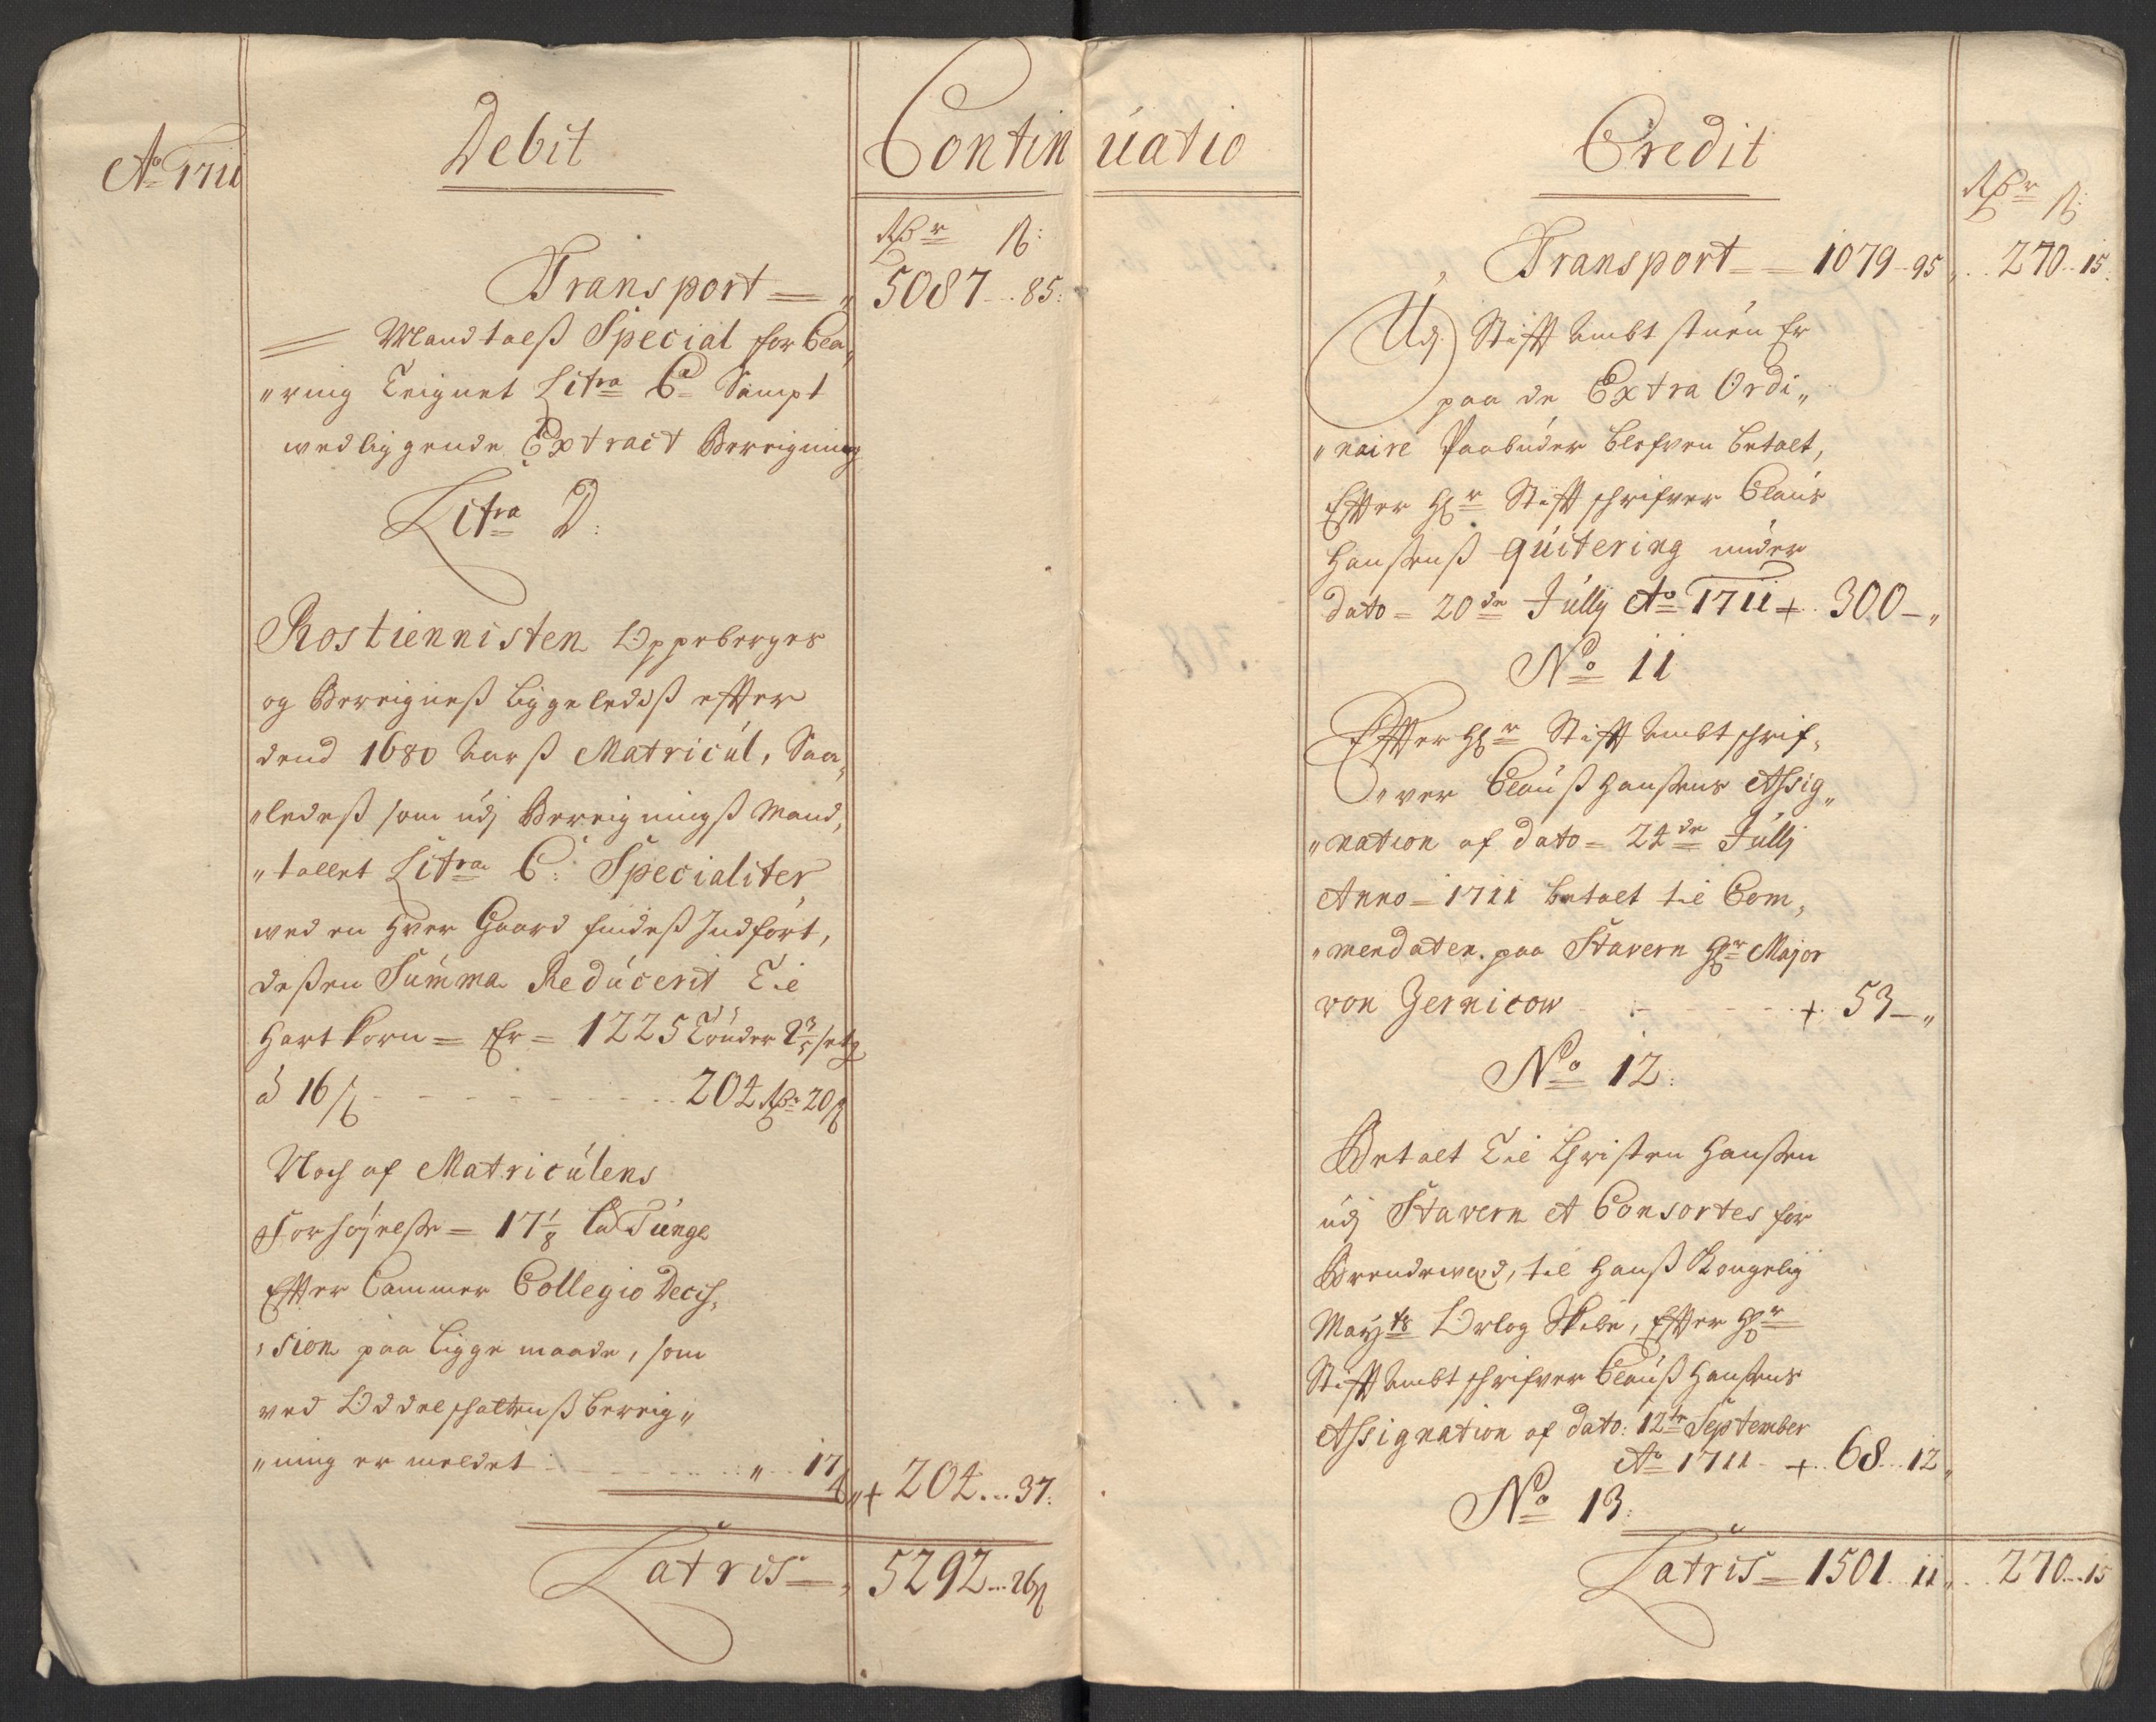 Ao 1711
Debit
Continuatio
Rdr ß:
Transport = „ 5087 .. 85:
Mandtalß Special forkla„
„ring Teignet Litra C Sampt
wedliggende Extract Bereigning
Litra D:
Rostiennisten Oppeberges
og Bereigneß liggeledeß effter
dend 1680 Aarß Matricul, Saa„
„ledeß som udj Bereigningß Mand„
„tallet Litra C: Specialiter
wed en hver Gaard findeß Indfórt,
deßen Summa Reducerit Til
Hartkorn = Er = 1225 Tónder 2 3/5 setg
á 16 ß - - - - - - - 204 Rdr 20 ß
Noch af Matriculens
Forhójelße = 17 1/8 Tunge
Effter Cammer Collegio Decis„
„sion paa ligge maade, som
ved Oddelschattenß bereig„
„ning er meldet - - - „ .. 17 „ + 204 ... 37:
Latris = „ 5292 ... 26 ß
Credit
Rdr ß:
Transport = = 1079 - 95 „ .. 270 .. 15
Udj Stifft Ambt stuen Er
paa de Extra Ordi„
„naire Paabuder blefven betalt,
Effter Hr Stifft schrifver Claus
Hanßenß quitering under
dato = 20de Júllÿ Ao 1711 + .. 300 - „
No 11
Effter Hr Stifft Ambt schrif„
„ver Clauß Hanßens Assig„
„nation af dato = 24de Júllj
Anno = 1711 betalt til Com„
„mendaten paa Stavern Hr Major
von Zernicow - - - - - + . 53 - „
No 12:
Betalt Til Christen Hanßen
udj Stavern et Consortes for
Brendewed, til Hanß Kongelig
Mayts Orlog Skibe, Effter Hr
Stifft Ambt schrifver Clauß Hanßens
Assignation af dato: 12te September
Ao 1711 - + .. 68 .. 12 „
No 13:
Latris = 1501 .. 11 „ .. 270 ... 15